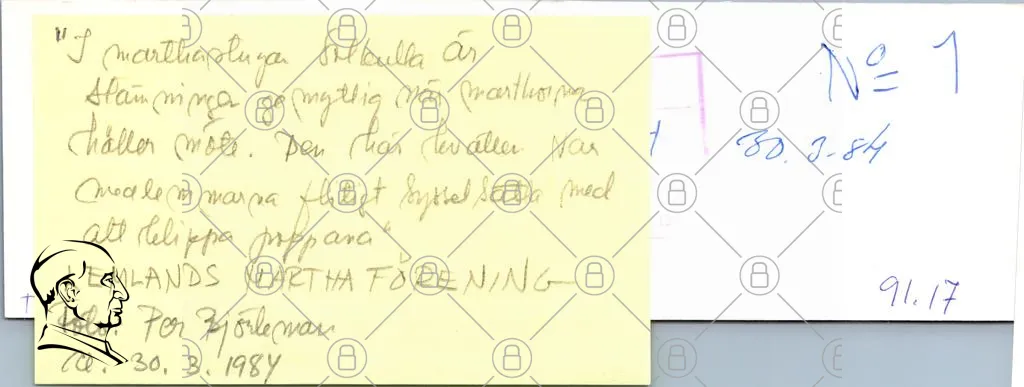 "I marthastugan Solkulla är
stämningen gemytlig när marthorna
håller möte. Den här kvällen var
medlemmarna flitigt sysselsatta med
att klippa poppana"
LEMLANDS MARTHAFÖRENING
Foto: Per Björkman
30.3.1984
No 1
30.3-84
91.17